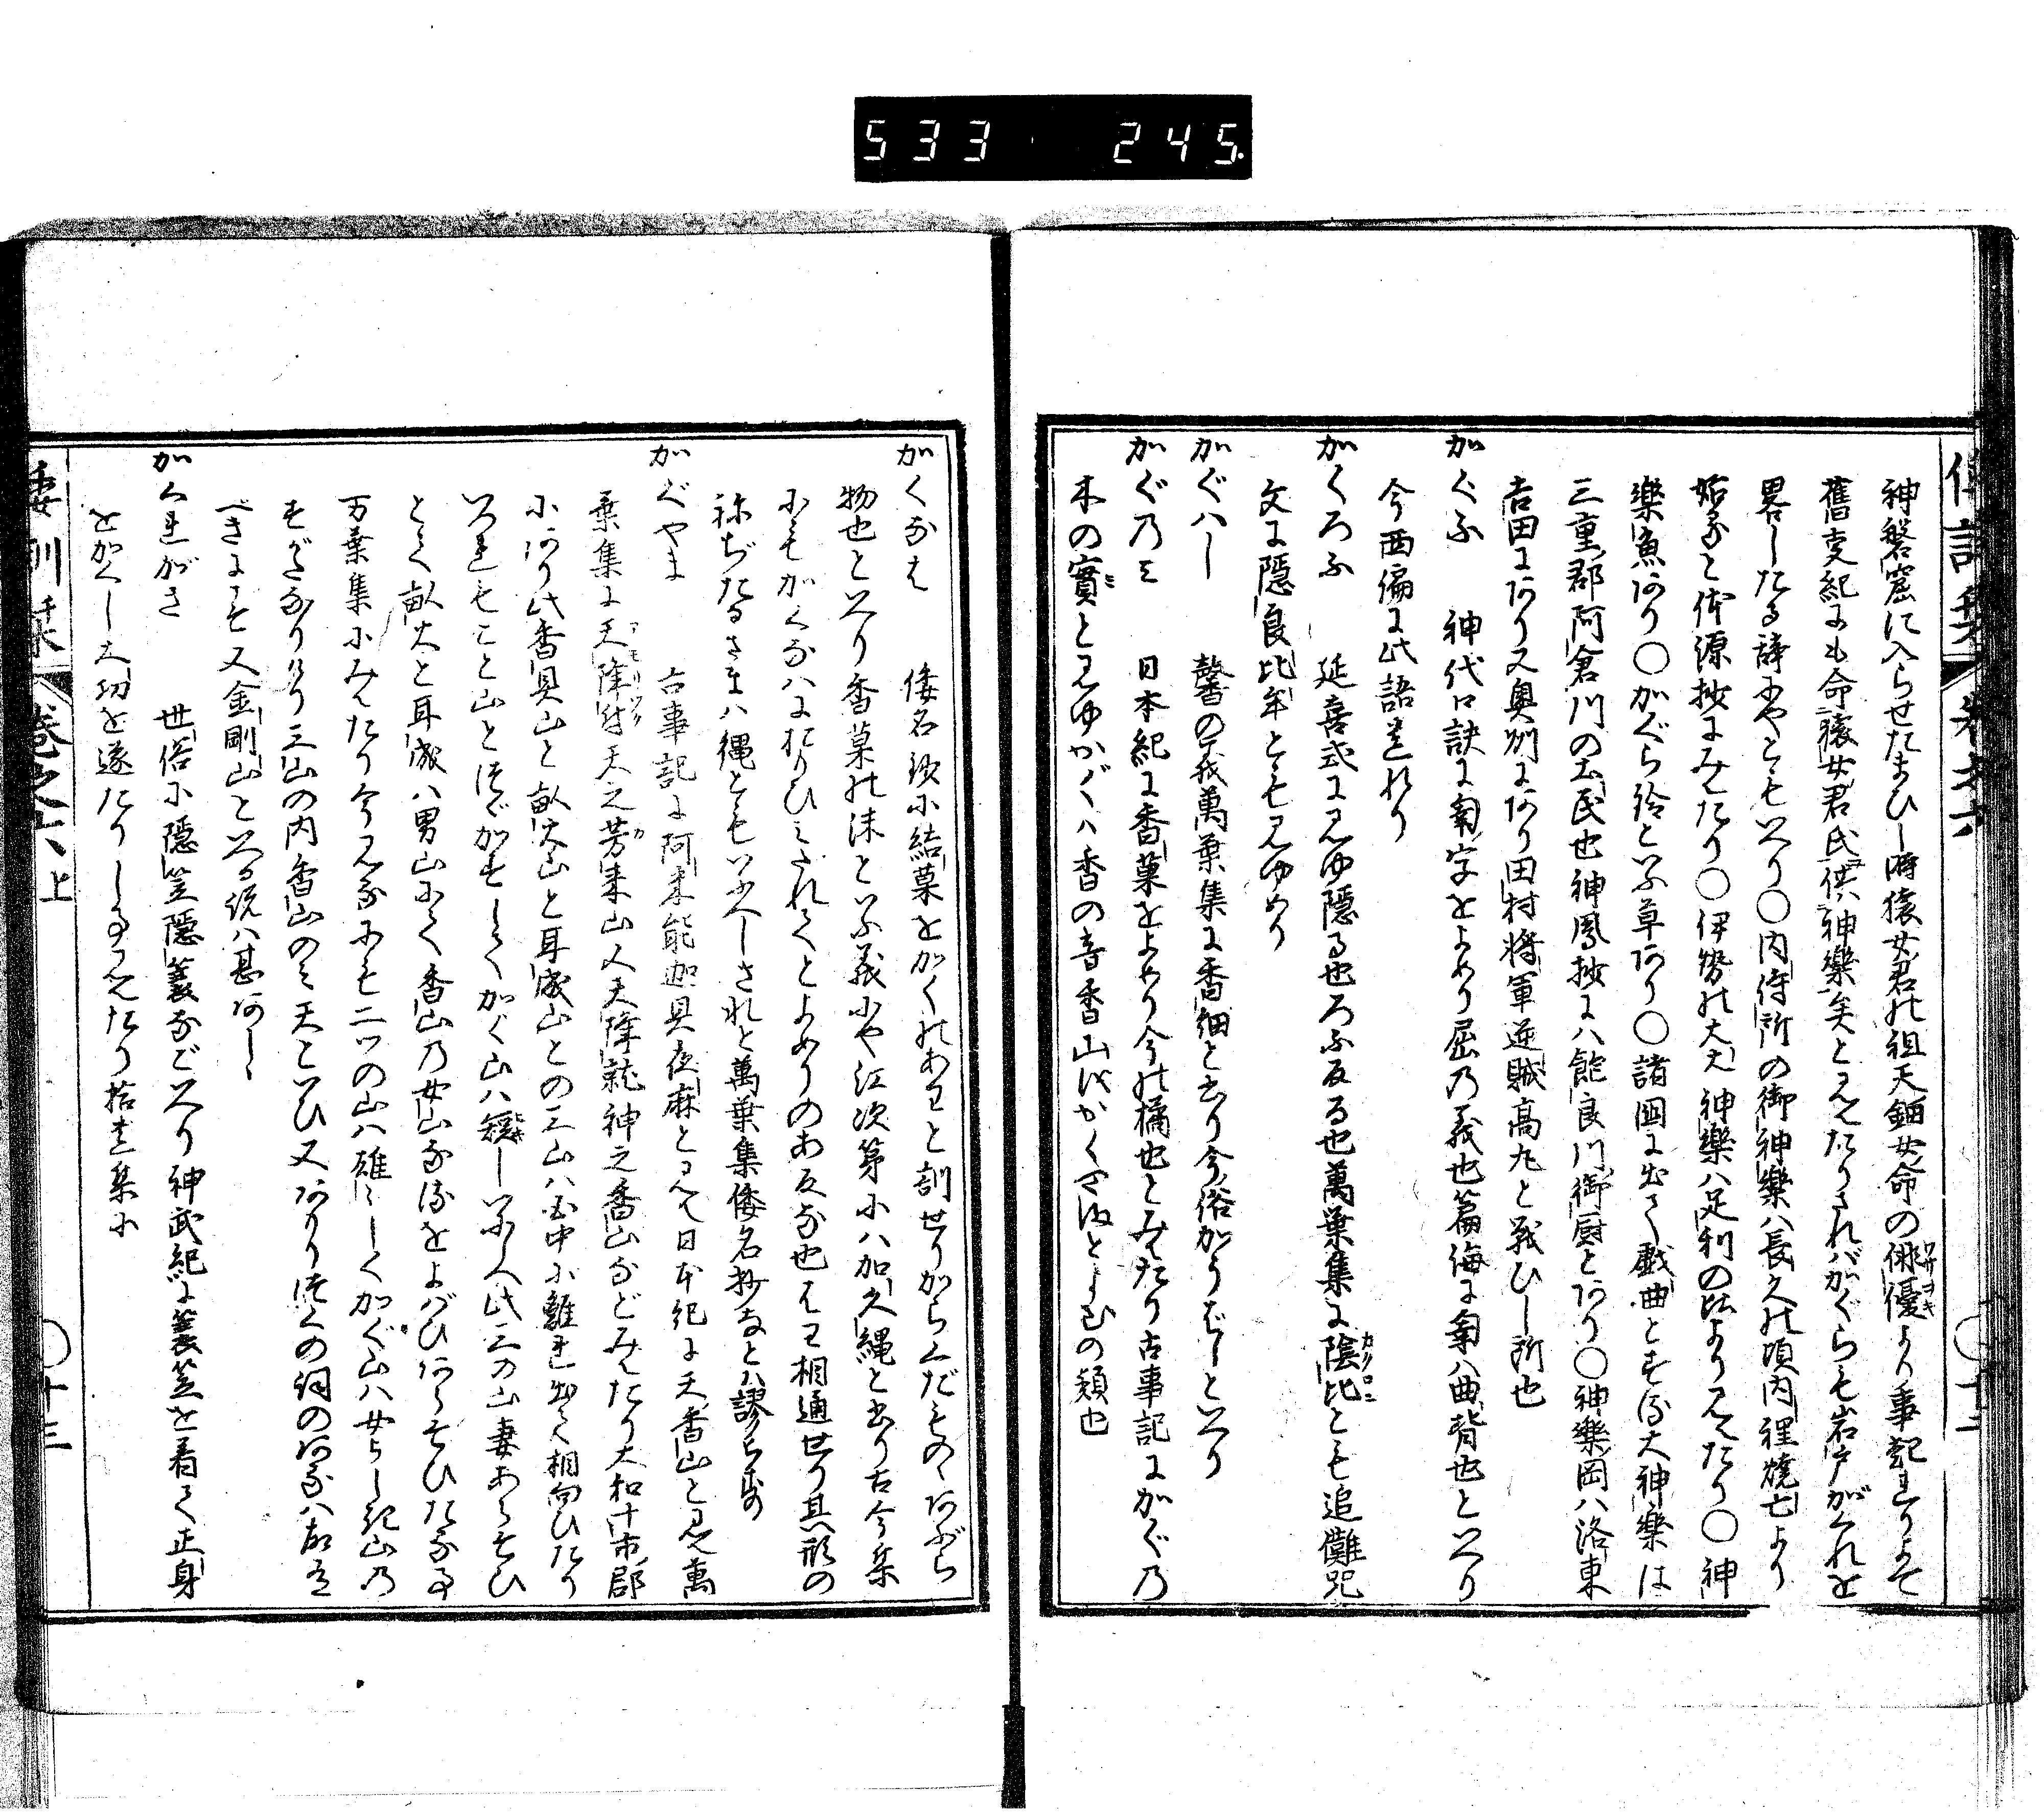 533 245.
神磐窟に入らせたまひし時猿女君の祖天鈿女命の俳優より事起れりよて
舊事紀にも命猿女君氏供神樂矣と見えたりされバかぐらも岩戸がくれを
畧したる辞にやともいへり〇内侍所の御神樂ハ長久の頃内裡燒亡より
始ると体源抄にみえたり〇伊勢の大大神樂ハ足利の比より見えたり〇神
樂魚あり〇かぐら鈴といふ草あり〇諸國に出て戯曲とする大神樂は
三重郡阿倉川の土民也神鳳抄にハ能良川御厨とあり〇神樂岡ハ洛東
吉田にあり又奥州にあり田村將軍逆賊高丸と戦ひし所也
かぐふ 神代口訣に匍字をよめり屈の義也篇海に匍ハ曲脊也といへり
今西偏に此語遺れり
かくろふ 延喜式に見ゆ隱る也ろふ反る也萬葉集に陰比とも追儺咒
文に隱良比年とも見ゆめり
かぐハし 馨の義萬葉集に香細と書り今俗かうばしといへり
かぐのミ 日本紀に香菓をよめり今の橘也とみえたり古事記にかぐの
木の實と見ゆかぐハ香の音香山をかくやまとよむの類也
かくなは 倭名鈔に結菓をかくのあわと訓せりからくだものゝあぶら
物也といへり香菓の沫といふ義にや江次第にハ加久縄と書り古今集
にもかくなハにおもひミだれてとよめりのあ反な也はわ相通せり其形の
ねぢたるさまハ縄ともいふべしされと萬葉集倭名抄なとハ謬らす
かぐやま 古事記に阿米能迦具夜麻と見え日本紀に天香山と見え萬
葉集に天降付天之芳来山又天降就神之香山などみえたり大和十市郡
にあり此香具山と畝火山と耳成山との三山ハ國中に離れ出て相向ひたり
いつれもこと山とつゞかすしてかぐ山ハ短しいにしへ此三の山妻あらそひ
とて畝火と耳成ハ男山にて香山の女山なるをよばひあらそひたる事
万葉集にみえたり今見るにも二つの山ハ雄々しくかぐ山ハ女らしき山の
すがたなりけり三山の内香山のミ天といひ又ありつくの詞のあるハ故有
べきにこそ又金剛山といへる説ハ甚あし
かくれがさ 世俗に隱笠隱簑などいへり神武紀に簑笠を着て正身
をかくし大功を遂たりし事見えたり拾遺集に
倭訓栞 巻之六上 〇十三